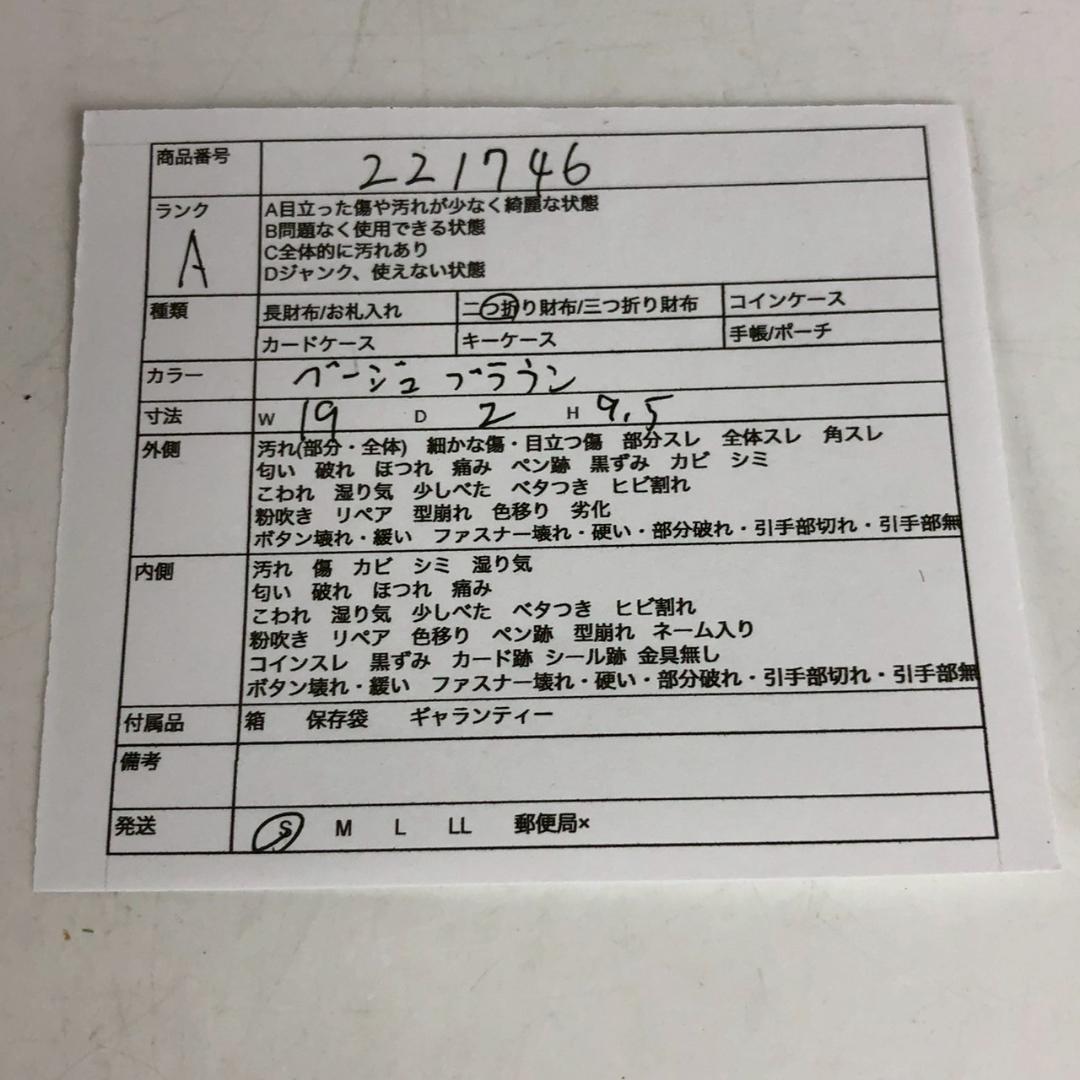 商品番号 221746
ランク A
A目立った傷や汚れが少なく綺麗な状態
B問題なく使用できる状態
C全体的に汚れあり
Dジャンク、使えない状態
種類 長財布/お札入れ 二つ折り財布/三つ折り財布 コインケース
カードケース キーケース 手帳/ポーチ
カラー ベージュ ブラウン
寸法 W 19 D 2 H 9.5
外側 汚れ(部分・全体) 細かな傷・目立つ傷 部分スレ 全体スレ 角スレ
匂い 破れ ほつれ 痛み ペン跡 黒ずみ カビ シミ
こわれ 湿り気 少しべた ベタつき ヒビ割れ
粉吹き リペア 型崩れ 色移り 劣化
ボタン壊れ・緩い ファスナー壊れ・硬い・部分破れ・引手部切れ・引手部無
内側 汚れ 傷 カビ シミ 湿り気
匂い 破れ ほつれ 痛み
こわれ 湿り気 少しべた ベタつき ヒビ割れ
粉吹き リペア 色移り ペン跡 型崩れ ネーム入り
コインスレ 黒ずみ カード跡 シール跡 金具無し
ボタン壊れ・緩い ファスナー壊れ・硬い・部分破れ・引手部切れ・引手部無
付属品 箱 保存袋 ギャランティー
備考
発送 S M L LL 郵便局×